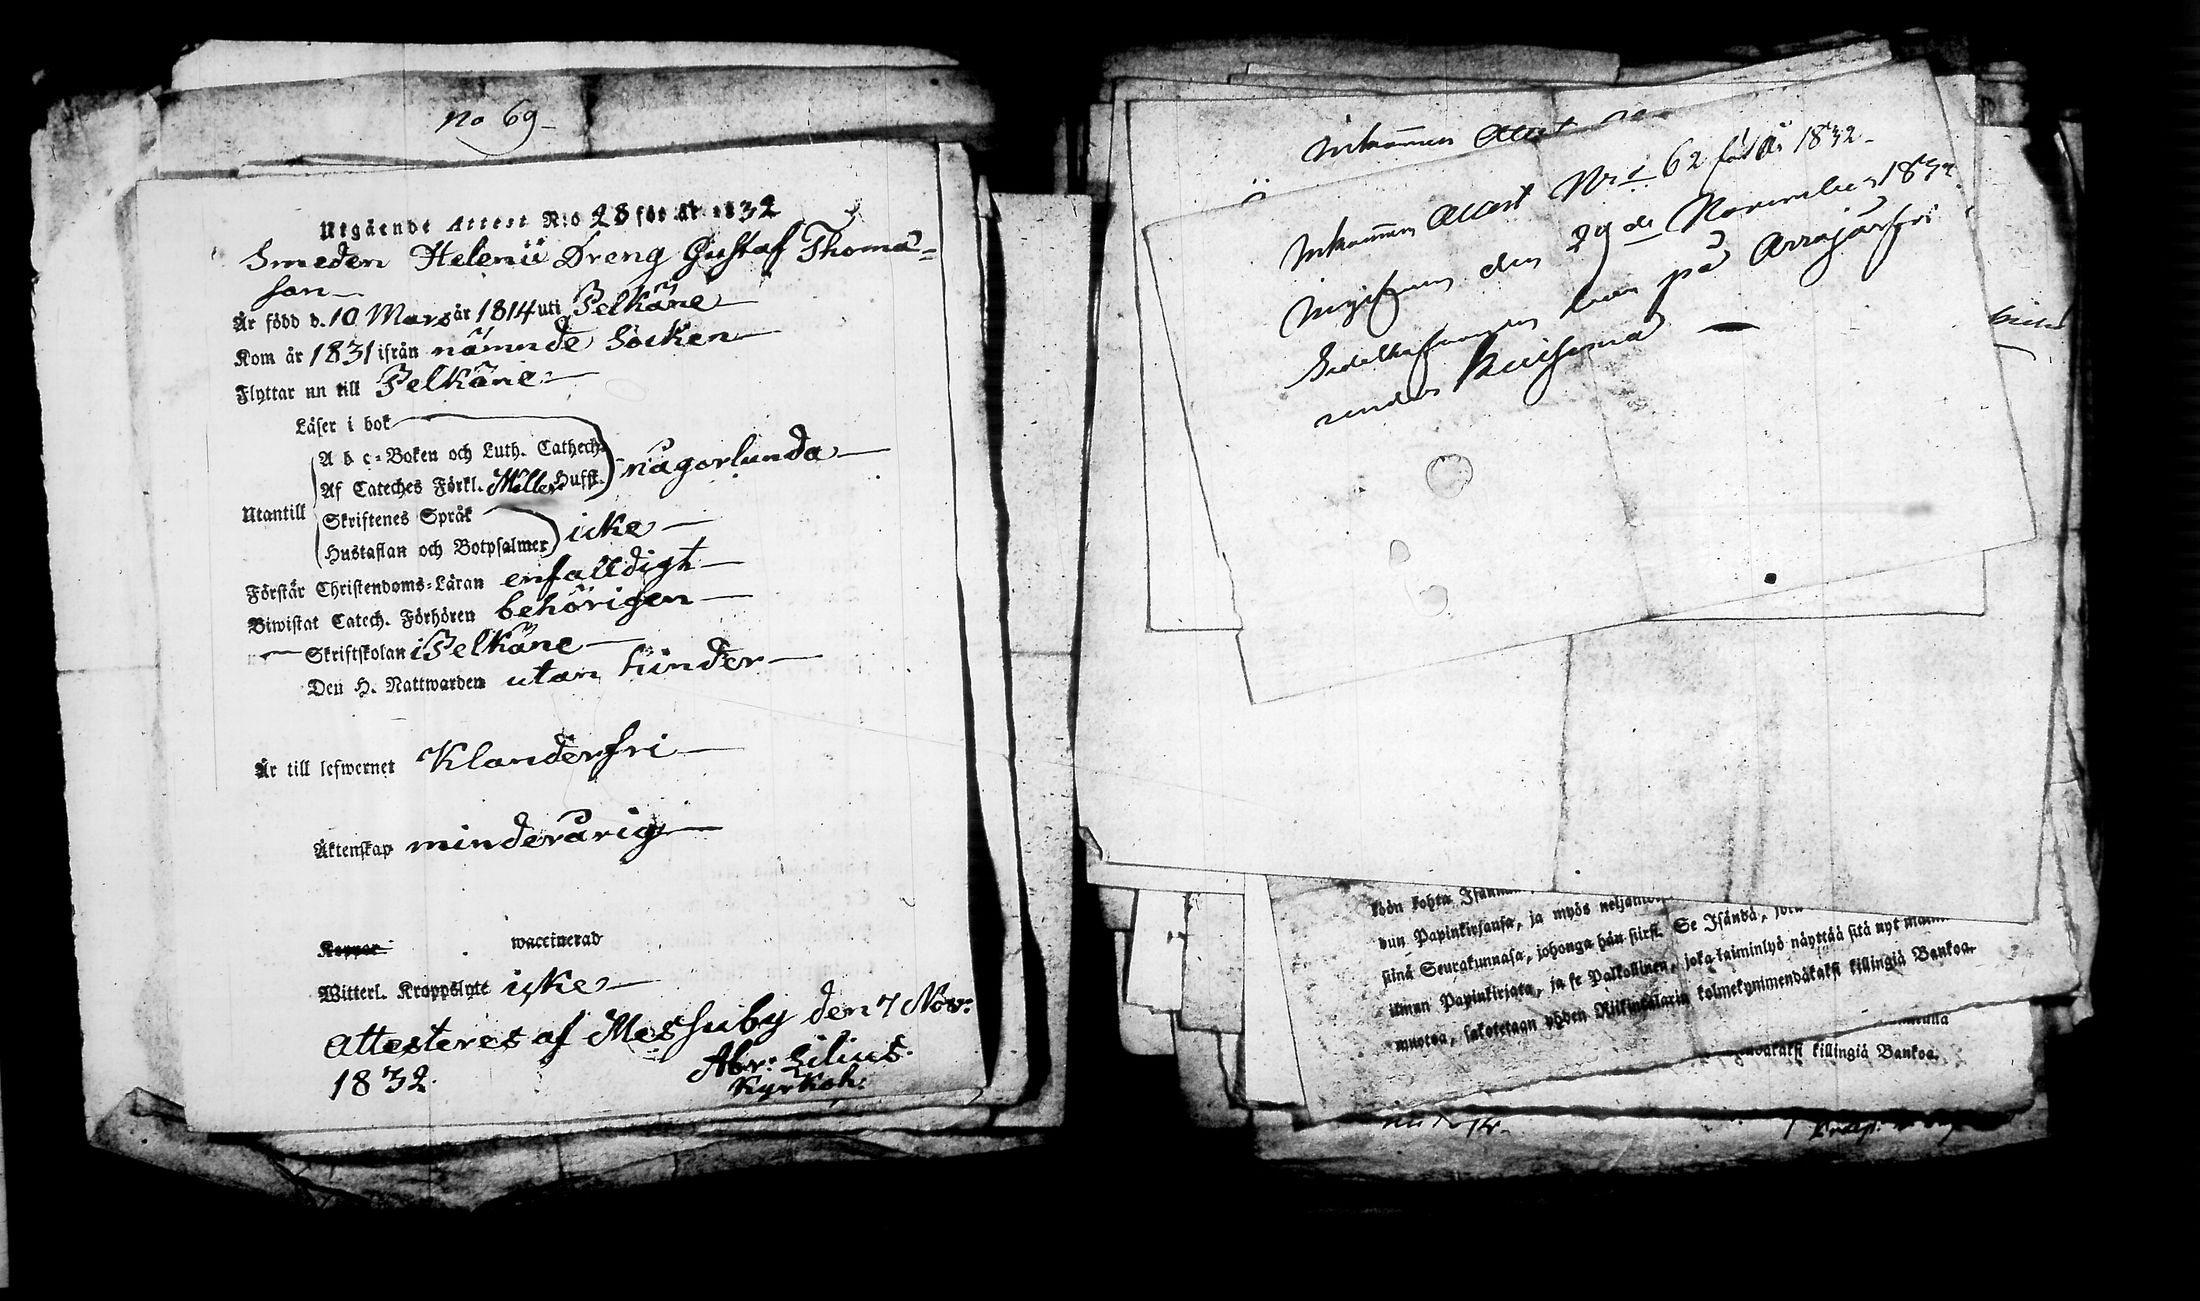 No 69
Utgående Attest N:o 28 för år 1832
Smeden Helenii Dreng Gustaf Thoma=
son
Är född d. 10 Mars år 1814 uti Pelkäne
Kom år 1831 ifrån nämnde Socken
Flyttar nu till Pelkäne
Läser i bok
A b c=Boken och Luth. Cathech.
Af Cateches Förkl. Möller Hufst.
någorlunda
Utantill
Skriftenes Språk
Hustaflan och Botpsalmer
icke
Förstår Christendoms=Läran enfalldigt
Biwistat Catech. Förhören behörigen
Skriftskolan i Pelkäne
Den H. Nattwarden utan hinder
Är till lefwernet Klanderfri
Äktenskap minderårig
Koppor waccinerad
Witterl. Kroppslyte icke
Attesteres af Messuby den 7 Nov:
1832. Abr: Lilius.
Kyrkoh:
Inkommen Attest
Inkommen Attest N:o 62 för År 1832
den 29de November 1832
på
under
köön kohta
wun Papinkirjansa, ja myös
siinä Seurakunnasa, johonga hän siirsi. Se Isändä,
ilman Papinkirjata, ja se Palkollinen, joka laiminlyö näyttää sitä nyt
muotoa, sakotetaan yhden Riikintalarin kolmekymmendäkaksi killingiä Bankoa.
killingiä Bankoa.